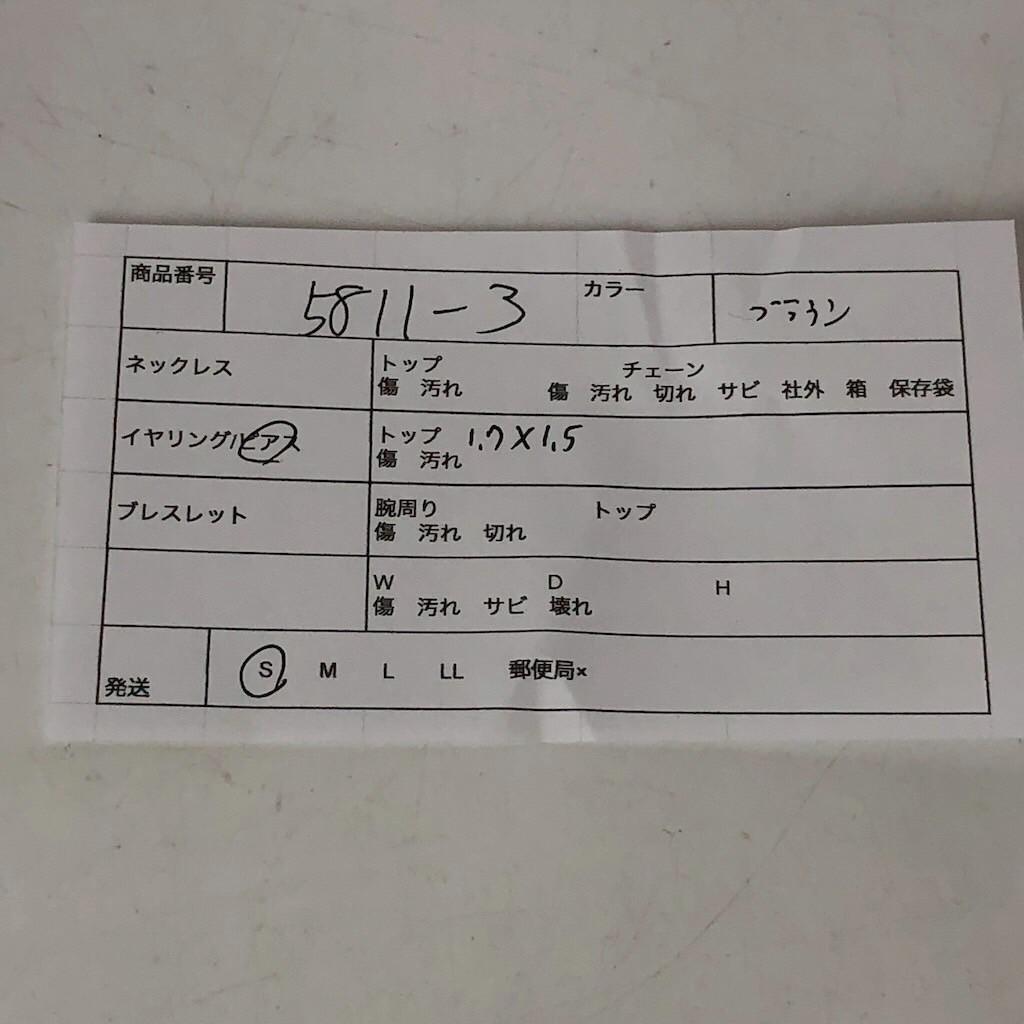 商品番号 5811-3 カラー ブラウン
ネックレス トップ チェーン
傷 汚れ 傷 汚れ 切れ サビ 社外 箱 保存袋
イヤリング/ピアス トップ 1.7×1.5
傷 汚れ
ブレスレット 腕周り トップ
傷 汚れ 切れ
W D H
傷 汚れ サビ 壊れ
発送 S M L LL 郵便局×